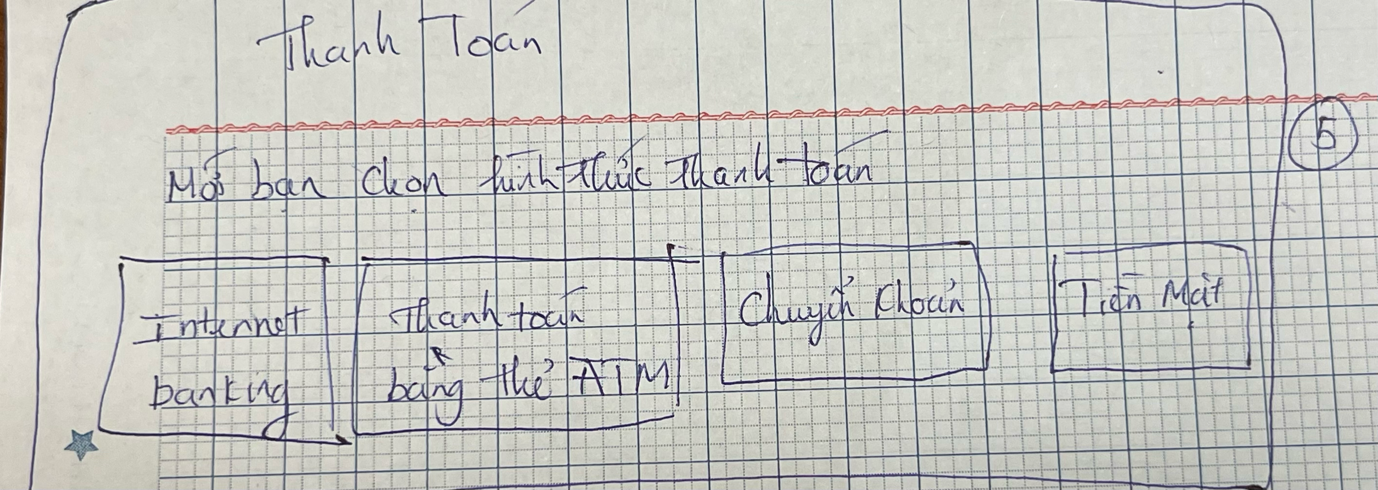 Thanh Toán
5
Mời bạn chọn hình thức thanh toán
Internet
banking
Thanh toán
bằng thẻ ATM
Chuyển khoản
Tiền Mặt